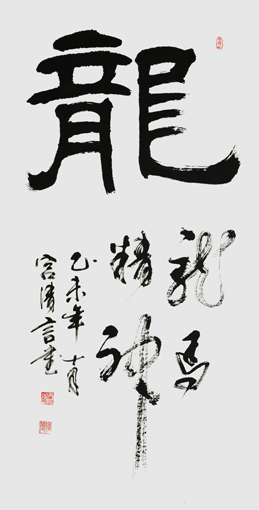 龍
龍馬
精神
乙未年十月
宫清言書